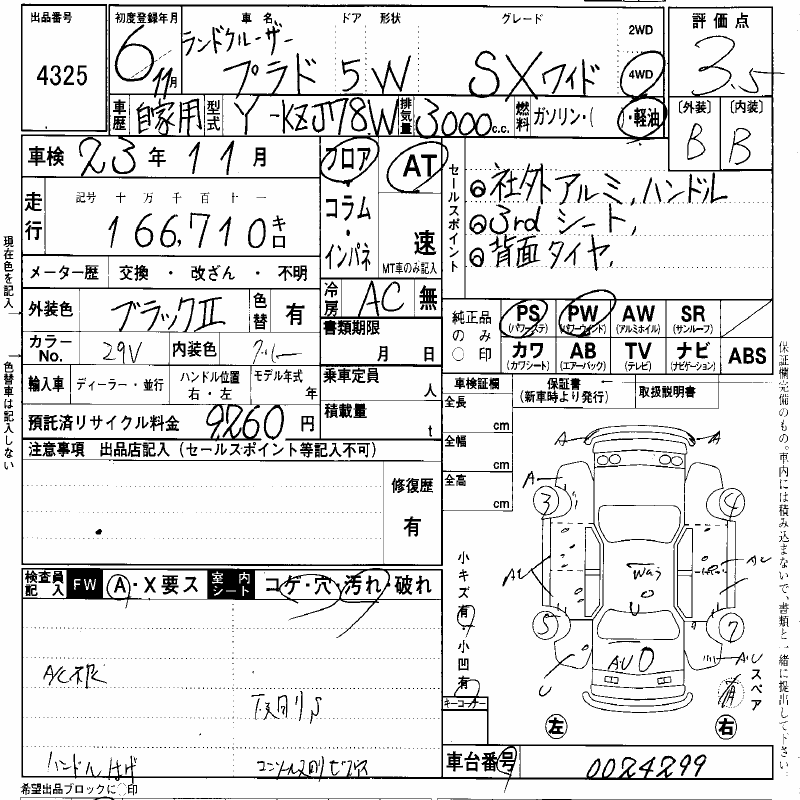 出品番号
4325
初度登録年月
6 11月
車名
ランドクルーザー
プラド
ドア
5
形状
W
グレード
SXワイド
2WD
4WD
評価点
3.5
〔外装〕 〔内装〕
B B
車歴 自家用
型式 Y-KZJ78W
排気量 3000c.c.
燃料 ガソリン・( )・軽油
車検 23年11月
走行
記号 十 万 千 百 十 一
166,710キロ
メーター歴 交換・改ざん・不明
外装色 ブラックII
色替 有
カラーNo. 29V
内装色 グレー
輸入車 ディーラー・並行
ハンドル位置 右・左
モデル年式 年
預託済リサイクル料金 9260円
フロア・コラム・インパネ
AT
速
MT車のみ記入
冷房 AC 無
書類期限
月 日
乗車定員 人
積載量 t
セールスポイント
社外アルミ,ハンドル
3rdシート,
背面タイヤ,
純正品のみ〇印
PS (パワーステ) PW (パワーウインド) AW (アルミホイル) SR (サンルーフ)
カワ (カワシート) AB (エアーバック) TV (テレビ) ナビ (ナビゲーション) ABS
車検証欄
保証書 (新車時より発行)
取扱説明書
全長 cm
全幅 cm
全高 cm
注意事項 出品店記入(セールスポイント等記入不可)
修復歴
有
検査員記入 FW A・X要ス
室内シート コゲ・穴・汚れ・破れ
ハンドルはげ
小キズ有・小凹有
キーコーナー
A A
A
3 4
5 7
U
AU
スペア
左 右
車台番号 0024299
希望出品ブロックに〇印
現在色を記入 色替車は記入しない
保証欄完備のもの。車内には積み込まないで、書類と一緒に提出して下さい。